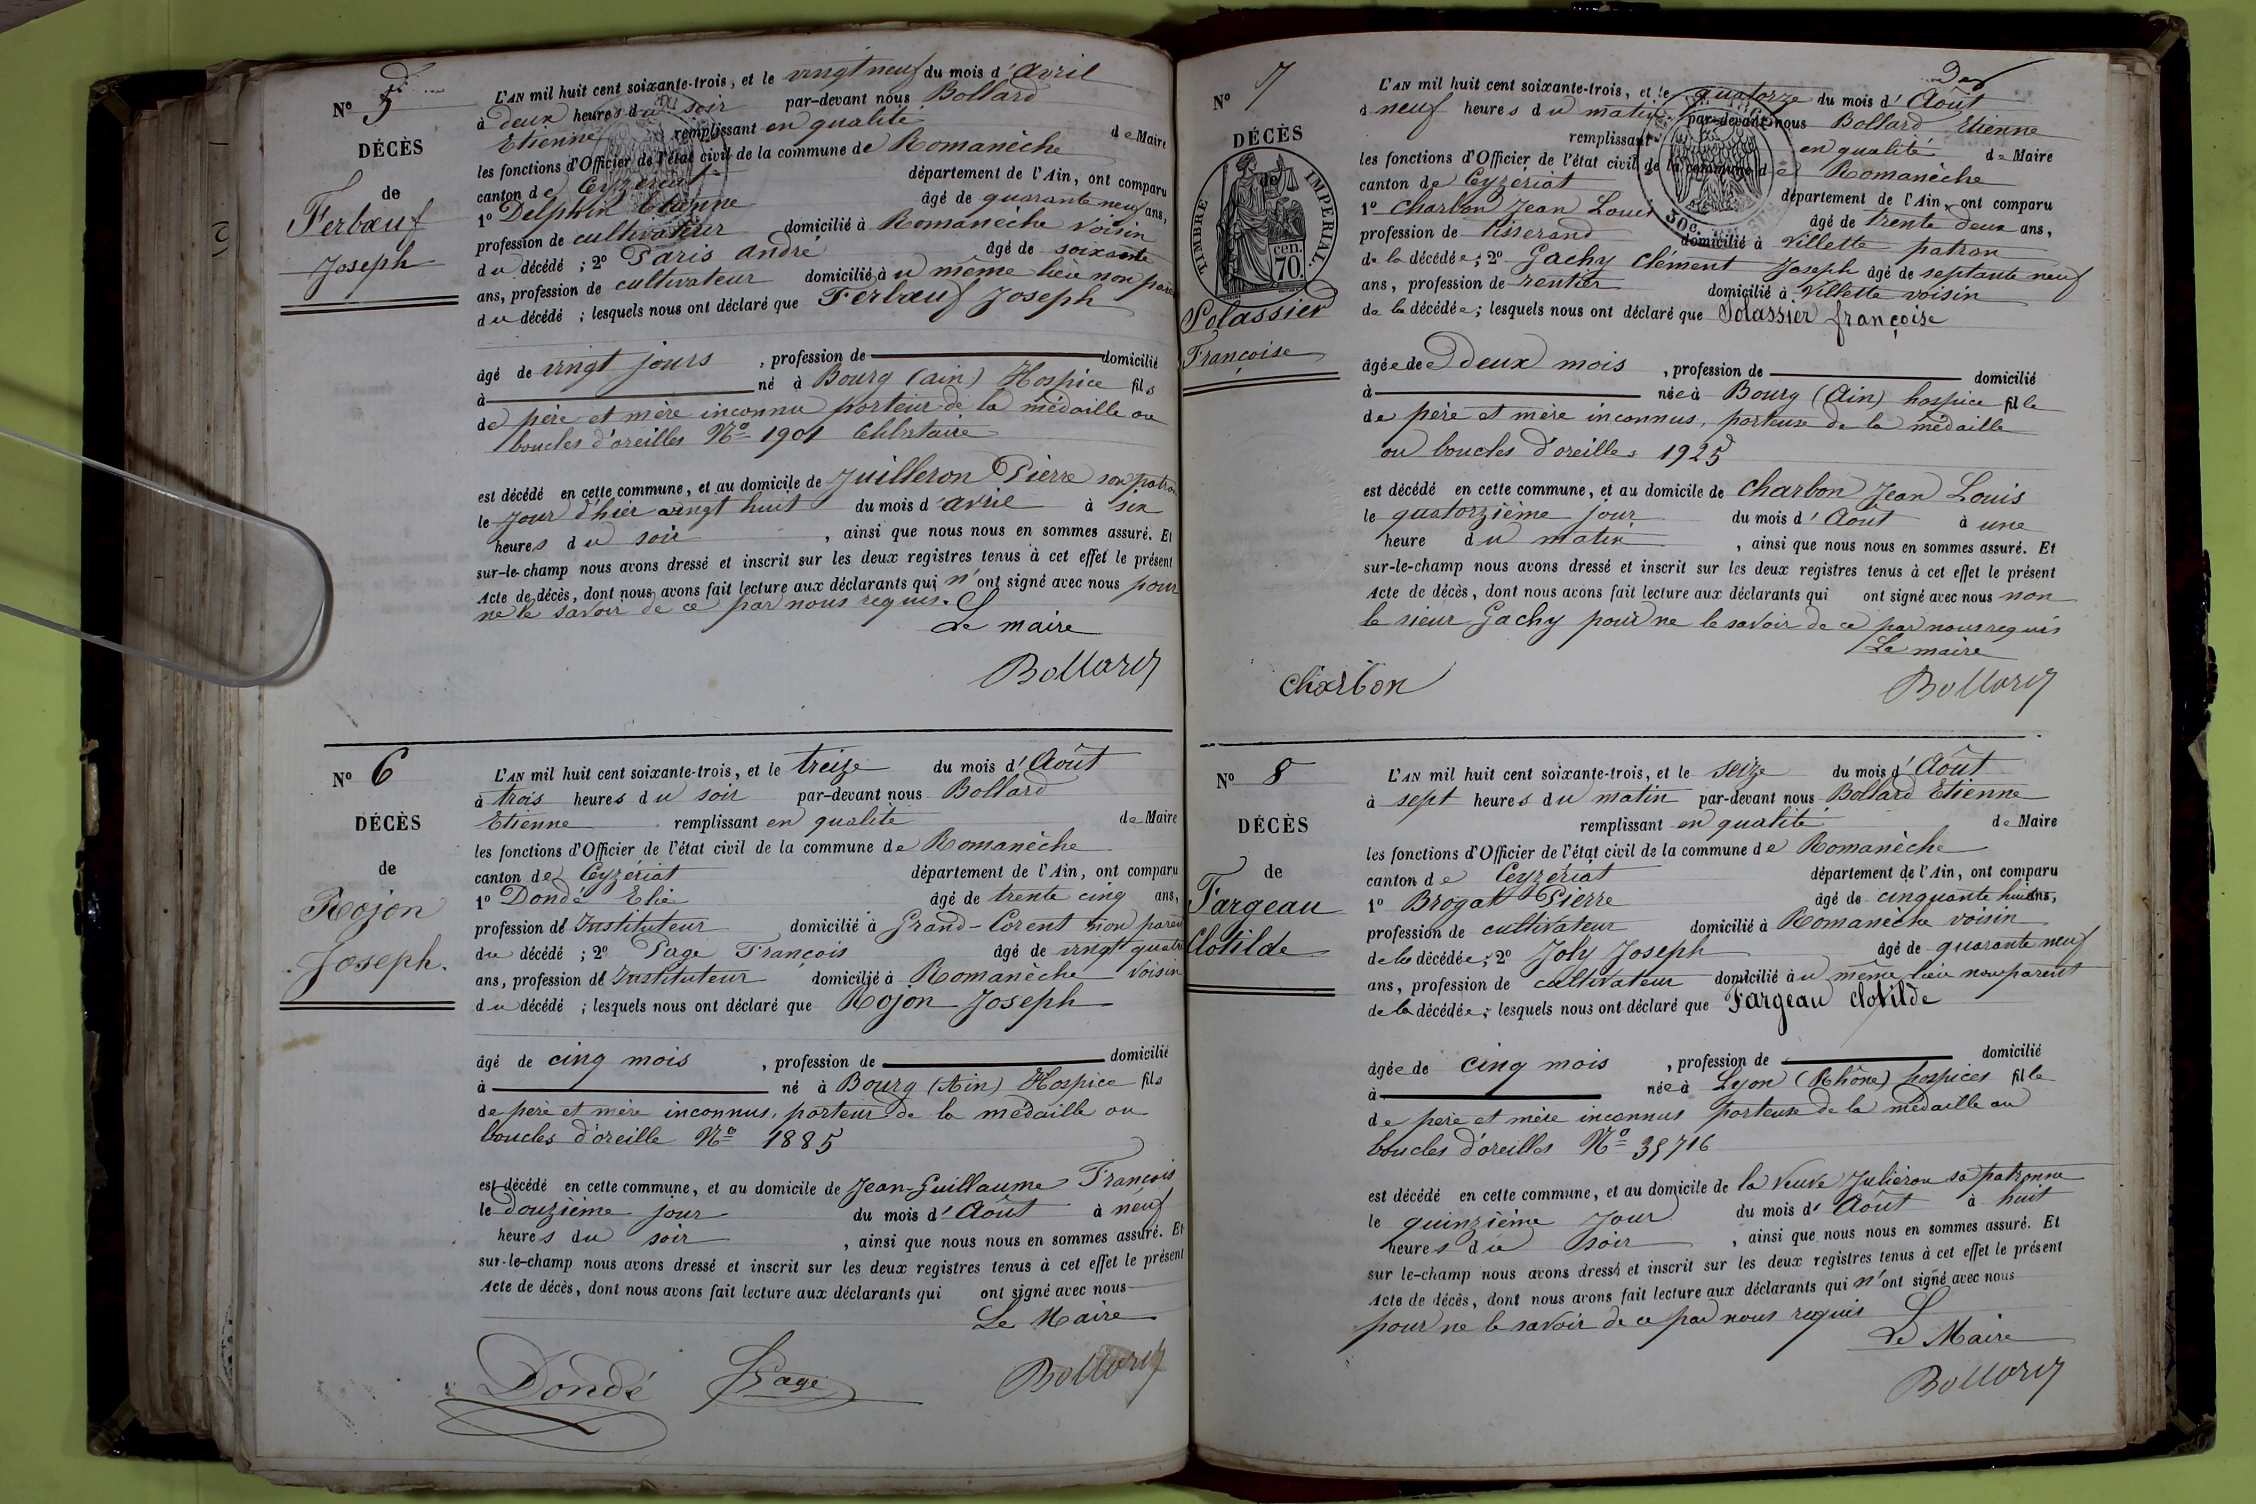 N° 5
DÉCÈS
de
Ferbœuf
Joseph
L'AN mil huit cent soixante-trois, et le vingt neuf du mois d'Avril
à deux heures du soir par-devant nous Bollard
Etienne remplissant en qualité de Maire
les fonctions d'Officier de l'état civil de la commune de Romanèche
canton de Ceyzériat département de l'Ain, ont comparu
1° Delphin Etienne âgé de quarante neuf ans,
profession de cultivateur domicilié à Romanèche voisin
du décédé ; 2° Paris André âgé de soixante
ans, profession de cultivateur domicilié à u même lieu non paren
du décédé ; lesquels nous ont déclaré que Ferbœuf Joseph
âgé de vingt jours , profession de domicilié
à né à Bourg (ain) Hospice fils
de père et mère inconnu porteur de la médaille ou
boucles d'oreilles N° 1901
est décédé en cette commune, et au domicile de Juilleron Pierre son patron
le jour d'hier vingt huit du mois d'avril à six
heures du soir , ainsi que nous nous en sommes assuré. Et
sur-le-champ nous avons dressé et inscrit sur les deux registres tenus à cet effet le présent
Acte de décès, dont nous avons fait lecture aux déclarants qui n'ont signé avec nous pour
ne le savoir de ce par nous requis.
Le maire
Bollard
N° 6
DÉCÈS
de
Rojon
Joseph.
L'AN mil huit cent soixante-trois, et le treize du mois d'Août
à trois heures du soir par-devant nous Bollard
Etienne remplissant en qualité de Maire
les fonctions d'Officier de l'état civil de la commune de Romanèche
canton de Ceyzériat département de l'Ain, ont comparu
1° Dondé Elie âgé de trente cinq ans,
profession d'Instituteur domicilié à Grand-Corent non paren
du décédé ; 2° Page François âgé de vingt quatre
ans, profession d'Instituteur domicilié à Romanèche voisin
du décédé ; lesquels nous ont déclaré que Rojon Joseph
âgé de cinq mois , profession de domicilié
à né à Bourg (Ain) Hospice fils
de père et mère inconnus, porteur de la médaille ou
boucles d'oreille N° 1885
est décédé en cette commune, et au domicile de Jean-Guillaume François
le douzième jour du mois d'Août à neuf
heures du soir , ainsi que nous nous en sommes assuré. Et
sur-le-champ nous avons dressé et inscrit sur les deux registres tenus à cet effet le présent
Acte de décès, dont nous avons fait lecture aux déclarants qui ont signé avec nous
Le Maire
Dondé Page Bollard
N° 7
DÉCÈS
de
TIMBRE IMPERIAL.
cen.
70.
Solassier
Françoise
30c.
L'AN mil huit cent soixante-trois, et le quatorze du mois d'Août
à neuf heures du matin par-devant nous Bollard Etienne
remplissant en qualité de Maire
les fonctions d'Officier de l'état civil de la commune de Romanèche
canton de Ceyzériat département de l'Ain, ont comparu
1° Charbon Jean Louis âgé de trente deux ans,
profession de tisserand domicilié à Villette patron
de la décédée ; 2° Gachy Clément Joseph âgé de septante neuf
ans, profession de rentier domicilié à Villette voisin
de la décédée ; lesquels nous ont déclaré que Solassier françoise
âgée de deux mois , profession de domicilié
à née à Bourg (Ain) hospice fille
de père et mère inconnus, porteuse de la médaille
ou boucles d'oreilles 1925
est décédé en cette commune, et au domicile de Charbon Jean Louis
le quatorzième jour du mois d'Août à une
heure du matin , ainsi que nous nous en sommes assuré. Et
sur-le-champ nous avons dressé et inscrit sur les deux registres tenus à cet effet le présent
Acte de décès, dont nous avons fait lecture aux déclarants qui ont signé avec nous non
le sieur Gachy pour ne le savoir de ce par nous requis
Le maire
Charbon Bollard
N° 8
DÉCÈS
de
Fargeau
Clotilde
L'AN mil huit cent soixante-trois, et le seize du mois d'Août
à sept heures du matin par-devant nous Bollard Etienne
remplissant en qualité de Maire
les fonctions d'Officier de l'état civil de la commune de Romanèche
canton de Ceyzériat département de l'Ain, ont comparu
1° Brogat Pierre âgé de cinquante huit ans,
profession de cultivateur domicilié à Romanèche voisin
de la décédée ; 2° Joly Joseph âgé de quarante neuf
ans, profession de cultivateur domicilié à u même lieu non parent
de la décédée ; lesquels nous ont déclaré que Fargeau Clotilde
âgée de cinq mois , profession de domicilié
à née à Lyon (Rhône) hospices fille
de père et mère inconnus porteuse de la médaille ou
boucles d'oreilles N° 35716
est décédé en cette commune, et au domicile de la Veuve Juliéron sa patronne
le quinzième jour du mois d'Août à huit
heures du soir , ainsi que nous nous en sommes assuré. Et
sur le-champ nous avons dressé et inscrit sur les deux registres tenus à cet effet le présent
Acte de décès, dont nous avons fait lecture aux déclarants qui n'ont signé avec nous
pour ne le savoir de ce par nous requis
Le Maire
Bollard